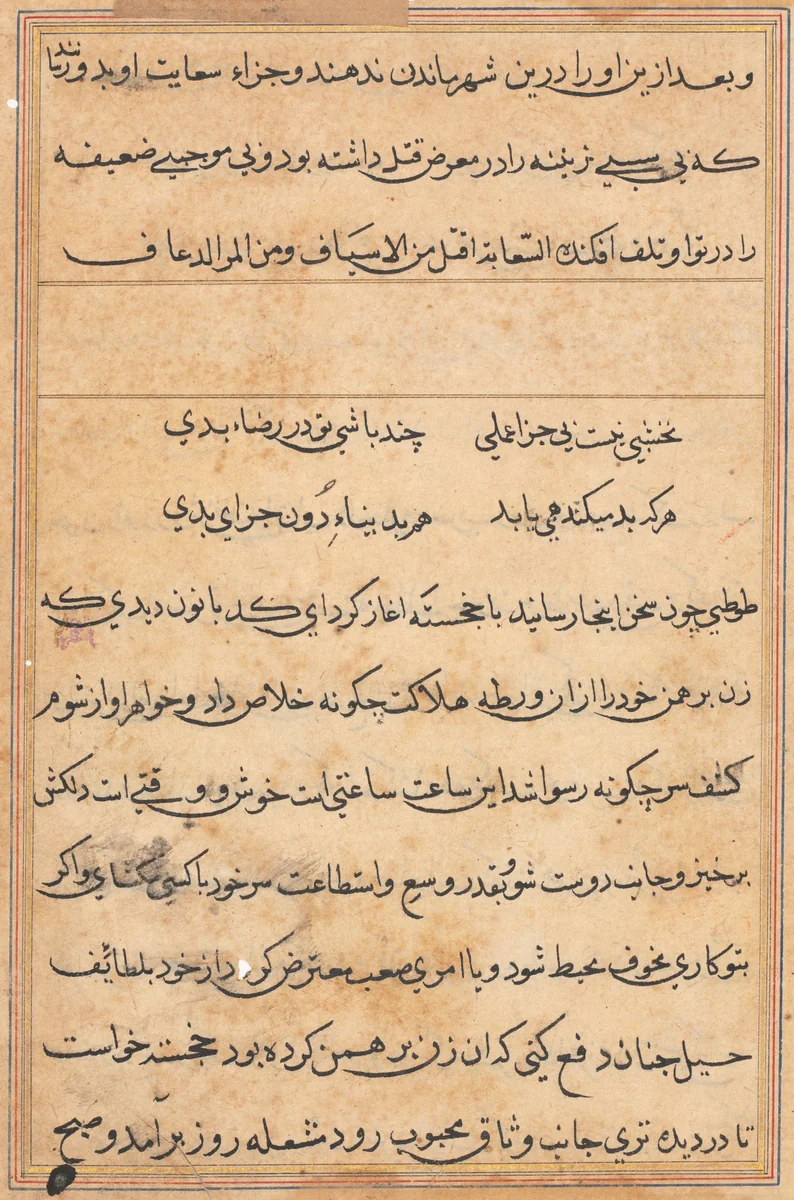 و بعد ازین او را درین شهر ماندن ندهند و جزاء سعایت او بدو رسانند
که بی سببی زنینه را در معرض قتل داشته بود و بی موجبی ضعیفه
را در توا و تلف افکنده السّعایة اقتل من الاسیَاف ومن المر الدعاف
نخشبی نیست بی جزا عملی چند باشی تو در رضاء بدی
هرکه بد میکند همی یابد هم بد بیناءِ دُون جزای بدی
طوطی چون سخن اینجا رسانید با خجستَه اغاز کرد ای کد بانون دیدی که
زن برهمن خود را ازان ورطه هلاکت چکونه خلاص داد و خواهر او از شوم
کشف سر چکونه رسوا شد این ساعت ساعتی است خوش و وقتی است دلکش
برخیز و جانب دوست شو و بقدر وسع و استطاعت سر خود با کسی نکشای و اکر
بتو کاری مخوف محیط شود و یا امری صعب معترض کردد از خود بلطائف
حیل چنان دفع کنی که ان زن برهمن کرده بود خجسته خواست
تا در دیده تری جانب وثاق محبوب رود مشعله روز برآمد و صبح